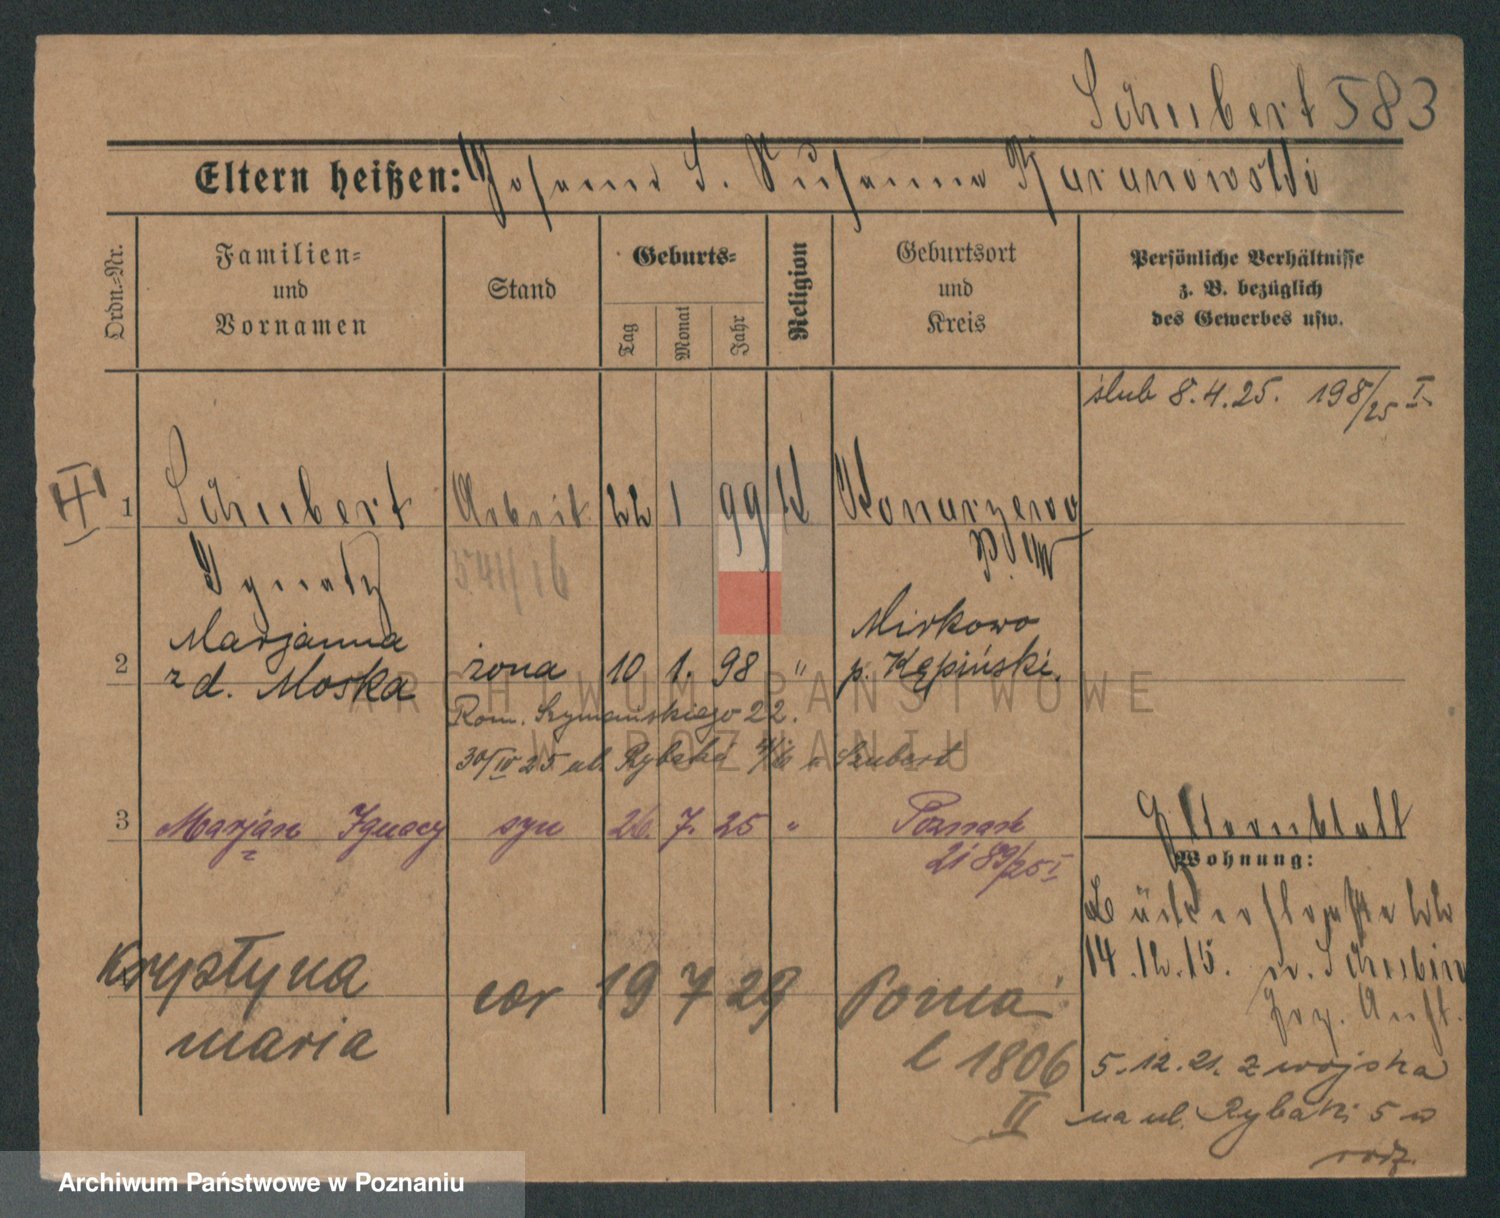 Schubert 583
Eltern heißen: Johann S. Susanna Karanowski
Ordn.-Nr.
Familien-
und
Vornamen
Stand
Geburts-
Tag
Monat
Jahr
Religion
Geburtsort
und
Kreis
Persönliche Verhältnisse
z. B. bezüglich
des Gewerbes usw.
ślub 8.4.25. 198/25 I
II
1 Schubert Arbeit. 22 1 99 K Konarzewo
Ignatz 5411/16 P. W
2 Marjanna żona 10 1. 98 " Mirkowo
z d. Moska p. Kępiński.
Rom. Szymańskiego 22.
30/IV 25 ul. Rybaki Szubert
3 Marjan Ignacy syn 26. 7. 25 " Poznań
2189/25 I
Elternblatt
Wohnung:
22
14.12.15.
Krystyna cór 19 7 29 Poznań
maria l 1806
II
5.12.21. z wojska
na ul. Rybaki 5 w
rodz.
ARCHIWUM PAŃSTWOWE
W POZNANIU
Archiwum Państwowe w Poznaniu